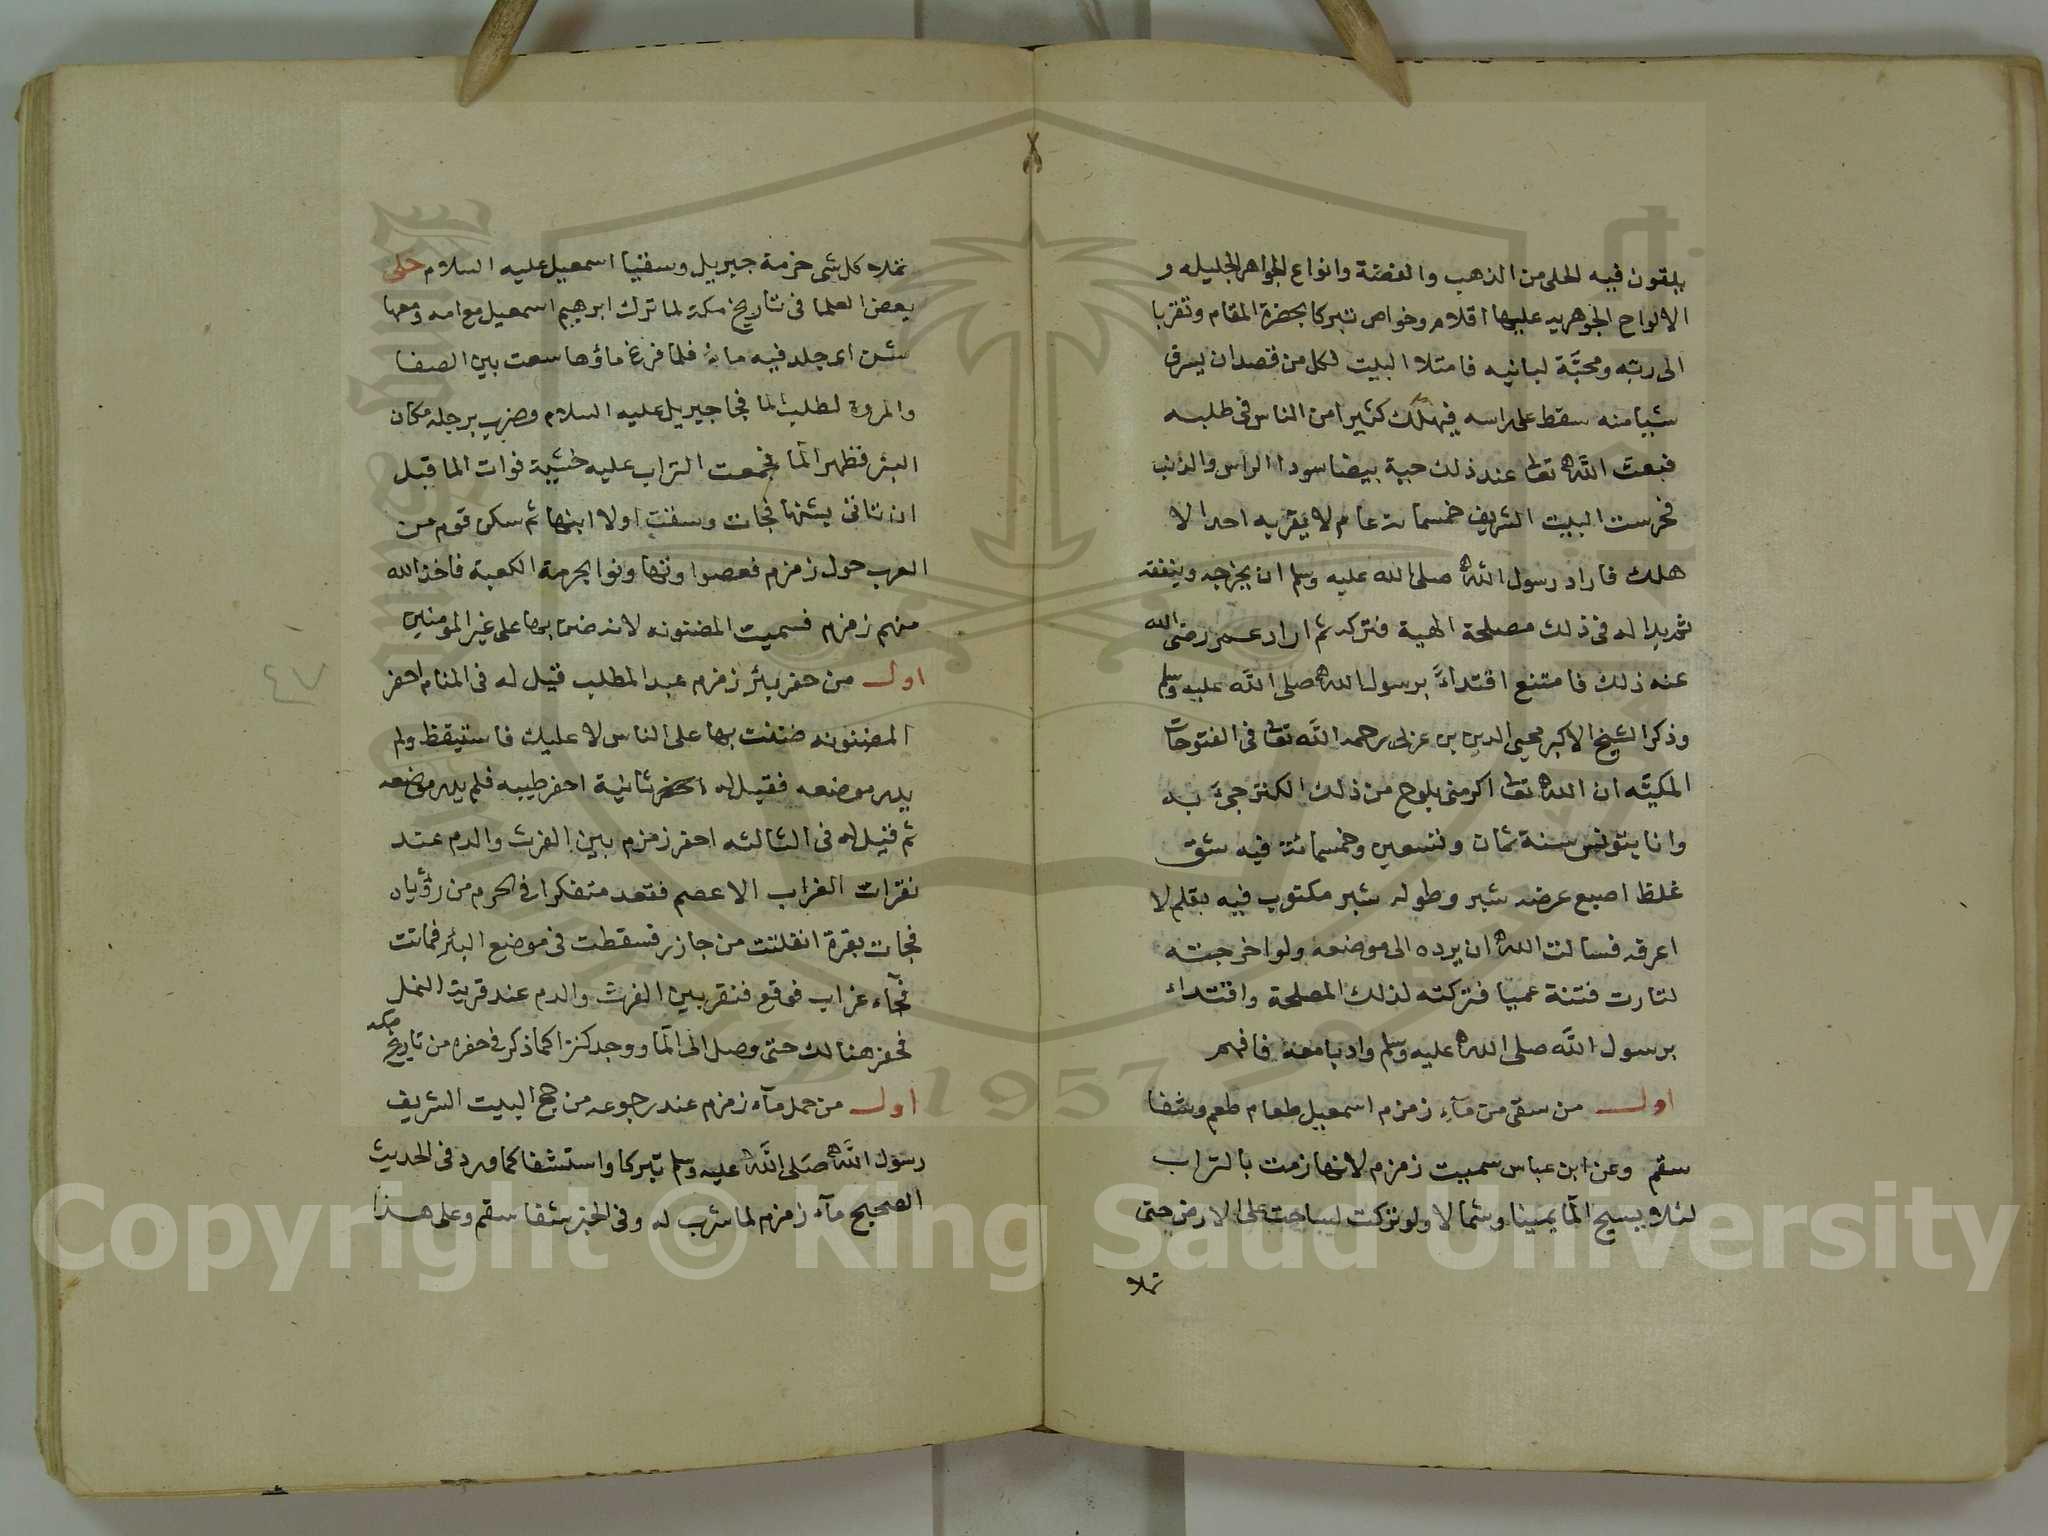 يلقون فيه الحلى من الذهب والفضة وانواع الجواهر الجليله و
الالواح الجوهريه عليها اقلام وخواص تبركا بحضرة المقام وتقربا
الى ربه ومحبة لبانيه فامتلا البيت فكل من قصد ان يسرق
شيا منه سقط على راسه فيهلك كثيرا من الناس فى طلبه
فبعث الله تعا عند ذلك حية بيضا سودا الراس والذنب
فحرست البيت الشريف خمسمائة عام لا يقربه احد الا
هلك فاراد رسول الله صلى الله عليه وسلم ان يخرجه وينفقه
ثم بدا له فى ذلك مصلحة الهية فتركه ثم اراد عمر رضى الله
عنه ذلك فامتنع اقتداء برسول الله صلى الله عليه وسلم
وذكر الشيخ الاكبر محيى الدين بن عربى رحمه الله تعا فى الفتوحات
المكيه ان الله تعا اكرمنى بلوح من ذلك الكنز جىء به
وانا بتونس سنة ثمان وتسعين وخمسمائة فيه شق
غلظ اصبع عرضه شبر وطوله شبر مكتوب فيه بقلم لا
اعرفه فسالت الله ان يرده الى موضعه ولو اخرجته
لثارت فتنة عميا فتركته لذلك المصلحة واقتداء
برسول الله صلى الله عليه وسلم وادبا معه فافهم
اول من سقى من ماء زمزم اسمعيل طعام طعم وشفا
سقم وعن ابن عباس سميت زمزم لانها زمت بالتراب
لئلا يسيح الما يمينا وشمالا ولو تركت لساحت على الارض حتى
تملا
تملا كل شى حزمة جبريل وسقيا اسمعيل عليه السلام حكى
بعض العلما فى تاريخ مكة لما ترك ابرهيم اسمعيل مع امه ومعها
شن اى جلد فيه ماء فلما فرغ ماؤها سعت بين الصفا
والمروة لطلب الما فجا جبريل عليه السلام وضرب برجله مكان
البئر فظهر الما فجمعت التراب عليه خشية فوات الما قبل
ان تاتى بشنها فجات وسقت اولا ابنها ثم سكن قوم من
العرب حول زمزم فعصوا وتهاونوا بحرمة الكعبة فاخذ الله
منهم زمزم فسميت المضنونه لانه ضن بها على غير المومنين
اول من حفر بئر زمزم عبد المطلب قيل له فى المنام احفر
المضنونه ضننت بها على الناس لا عليك فاستيقظ ولم
يدر موضعه فقيل له ثانية احفر طيبه فلم يدر موضعه
ثم قيل له فى الثالثه احفر زمزم بين الفرث والدم عند
نقرات الغراب الاعصم فقعد متفكرا فى الحرم من رؤياه
فجات بقرة انفلتت من جازر فسقطت فى موضع البئر فماتت
فجاء غراب فوقع فنقر بين الفرث والدم عند قرية النمل
فحفر هنالك حتى وصل الى الما ووجد كنزا كما ذكر فى حفره من تاريخ مكه
اول من حمل ماء زمزم عند رجوعه من حج البيت الشريف
رسول الله صلى الله عليه وسلم تبركا واستشفا كما ورد فى الحديث
الصحيح ماء زمزم لما شرب له وفى الخبر شفا سقم وعلى هذا
٤٧
1957
Copyright © King Saud University